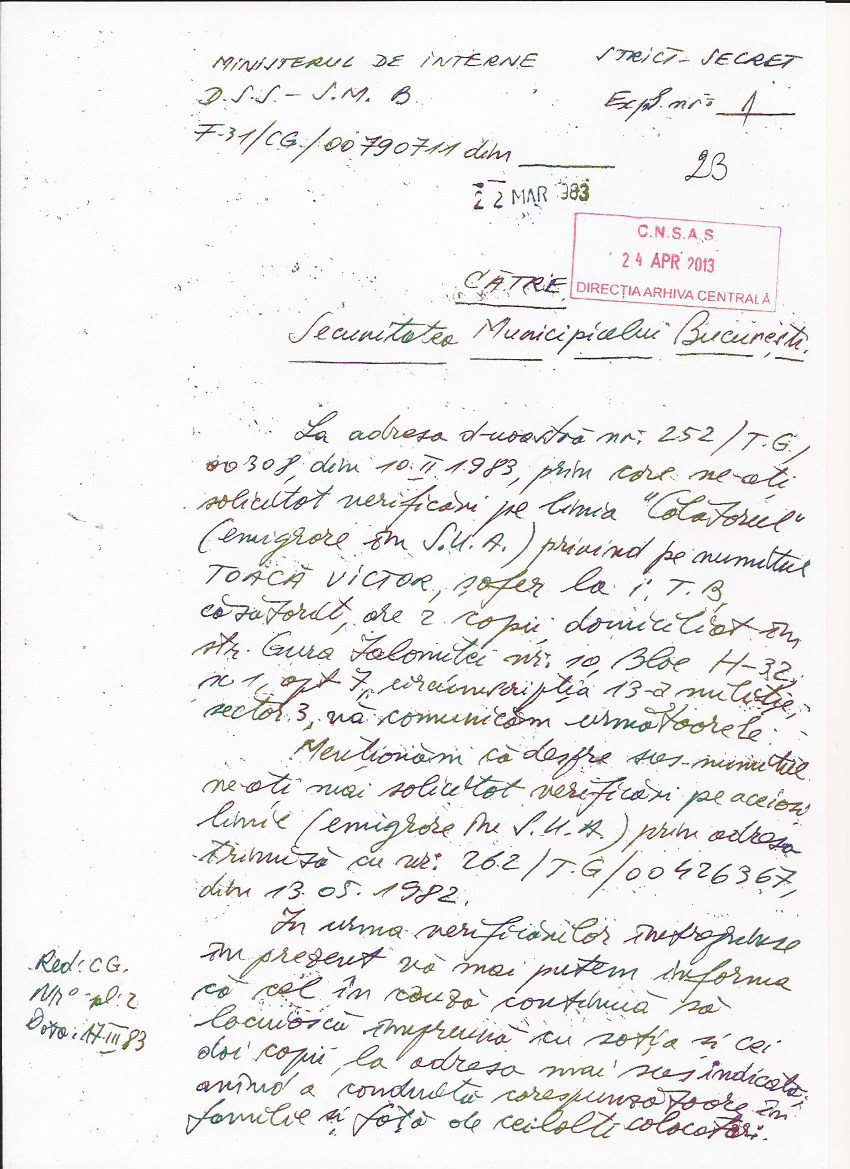 MINISTERUL DE INTERNE STRICT-SECRET
D.S.S.- S.M. B Expl. nr: 1
F-31/CG/00790711 din
2B
22 MAR 983
C.N.S.A.S.
24 APR 2013
DIRECȚIA ARHIVA CENTRALĂ
CĂTRE
Securitatea Municipiului București.
La adresa d-voastră nr: 252/T.G./
00308, din 10.II.1983, prin care ne-ați
solicitat verificări pe linia "Calatorul"
(emigrare în S.U.A.) privind pe numitul
TOACĂ VICTOR, șofer la I.T.B,
căsătorit, are 2 copii, domiciliat în
str. Gura Ialomitei nr: 10, Bloc H-32,
sc 1, apt 7, circumscripția 13-a miliție,
sector 3, vă comunicăm următoarele:
Menționăm că despre sus-numitul
ne-ati mai solicitat verificări pe aceiași
linie (emigrare în S.U.A) prin adresa
trimisă cu nr: 262/T.G/00426367,
din 13.05.1982.
In urma verificărilor intreprinse
în prezent vă mai putem informa
că cel în cauză continuă să
locuiască împreună cu soția și cei
doi copii, la adresa mai sus indicată,
avînd o conductă corespunzătoare în
familie și față de ceilalti colocatari.
Red: CG.
Nr° pl: 2
Data: 17 III 83